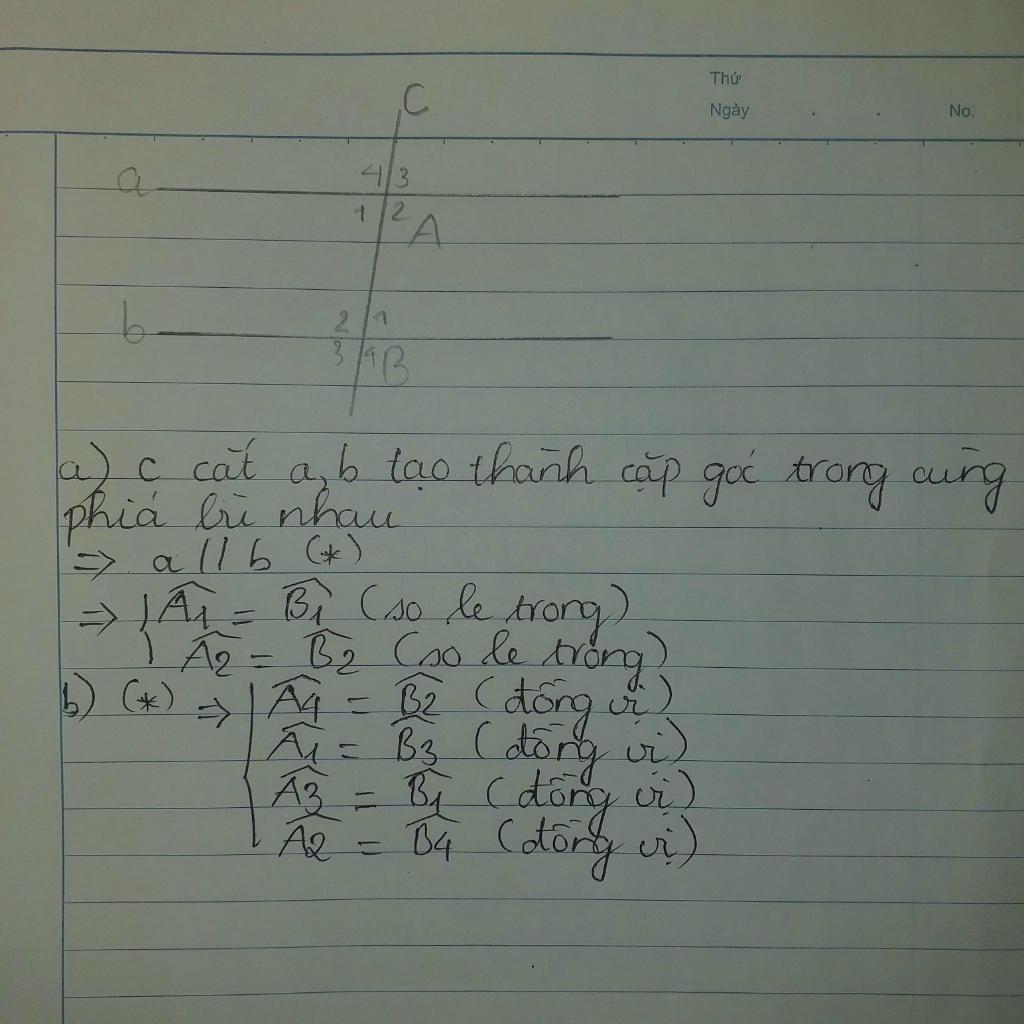 Thứ
Ngày . . No.
C
a 4 3
1 2 A
b 2 1
3 4 B
a) c cắt a, b tạo thành cặp góc trong cùng
phía bù nhau
=> a // b (*)
=> { Â1 = B̂1 (so le trong)
Â2 = B̂2 (so le trong)
b) (*) => { Â4 = B̂2 (đồng vị)
Â1 = B̂3 (đồng vị)
Â3 = B̂1 (đồng vị)
Â2 = B̂4 (đồng vị)